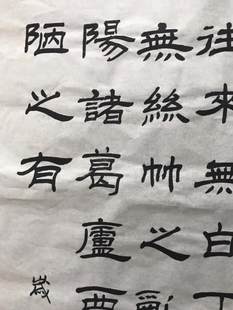 往來無白丁
無絲帅之亂
陽諸葛廬西
陋之有
歲